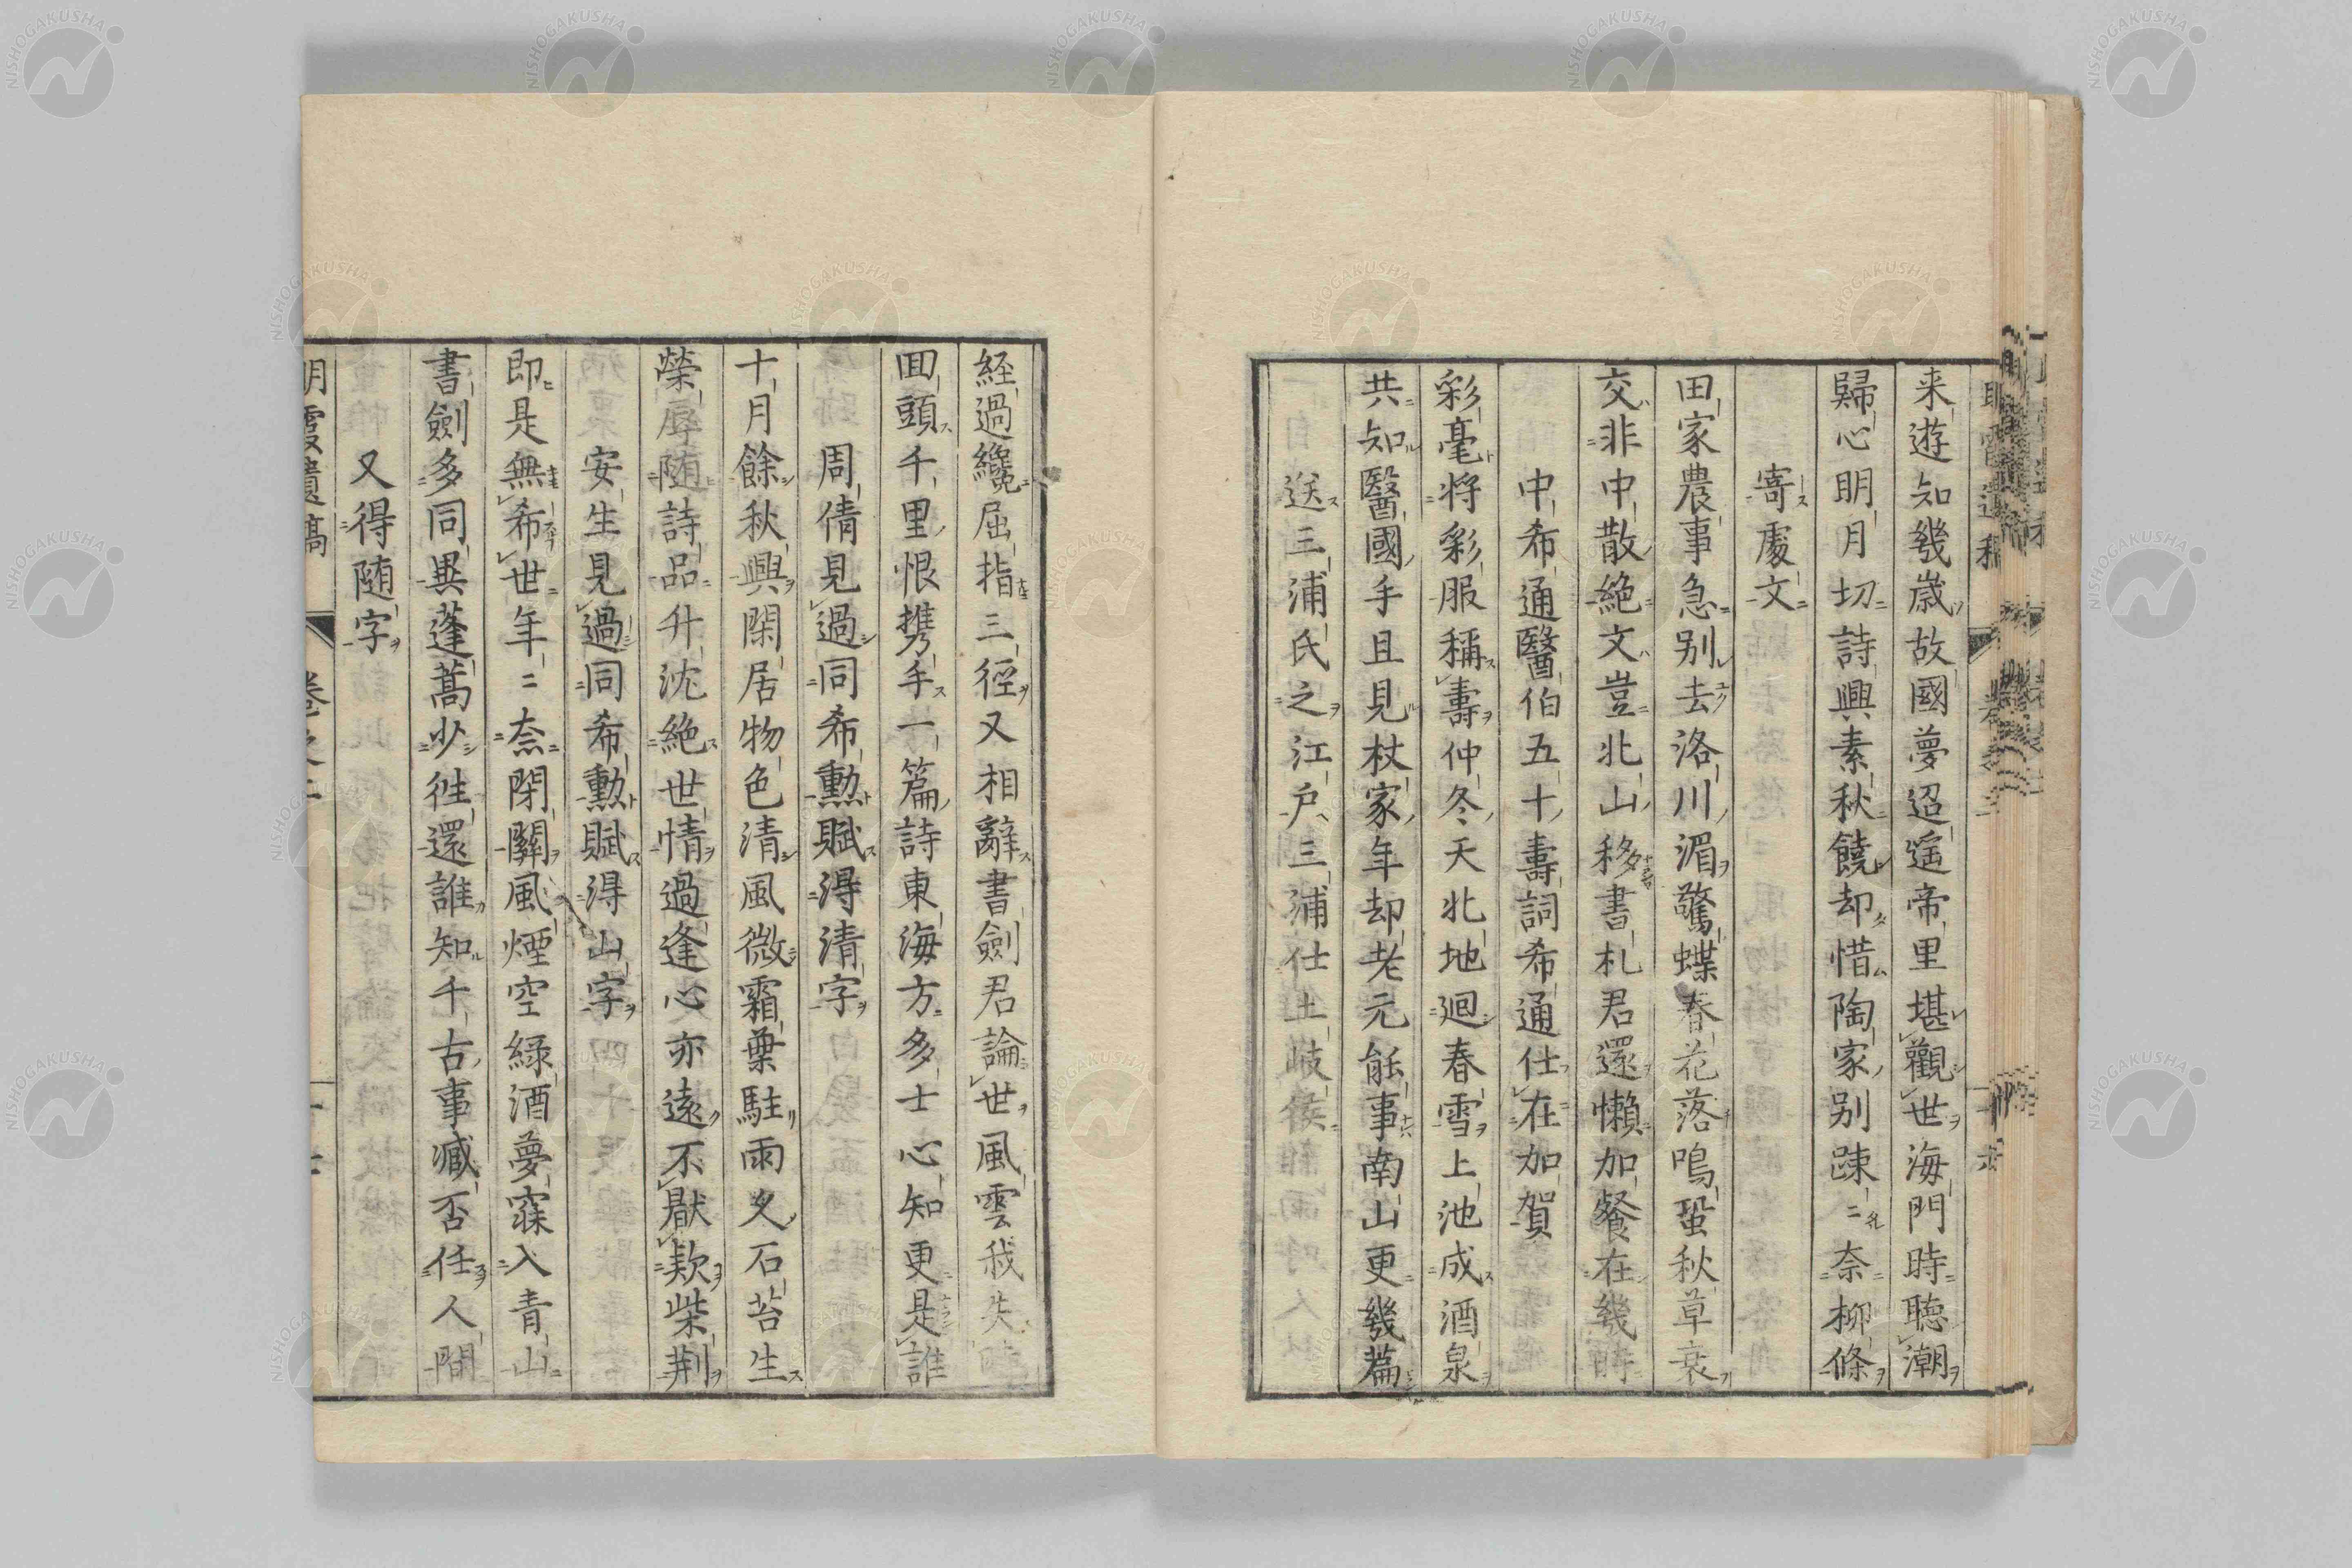 来遊知幾歳故國夢迢遥帝里堪觀世海門時聴潮
歸心明月切詩興素秋饒却惜陶家別踈〻奈柳條
寄處文
田家農事急別去洛川湄驚蝶春花落鳴蛩秋草衰
交非中散絶文豈北山移書札君還懶加餐在幾時
中希通醫伯五十壽詞希通仕在加賀
彩毫将彩服稱壽仲冬天北地廻春雪上池成酒泉
共知醫國手且見杖家年却老元能事南山更幾篇
送三浦氏之江戸三浦仕土岐侯
経過纔屈指三徑又相辭書劍君論世風雲我失時
囬頭千里恨携手一篇詩東海方多士心知更是誰
周倩見過同希勲賦得清字
十月餘秋興閑居物色清風微霜葉駐雨久石苔生
榮辱随詩品升沈絶世情過逢心亦遠不厭欵柴荆
安生見過同希勲賦得山字
即是無希世年〻奈閉關風煙空緑酒夢寐入青山
書劍多同異蓬蒿少徃還誰知千古事臧否任人間
又得随字
明霞遺稿 卷之二
NISHOGAKUSHA